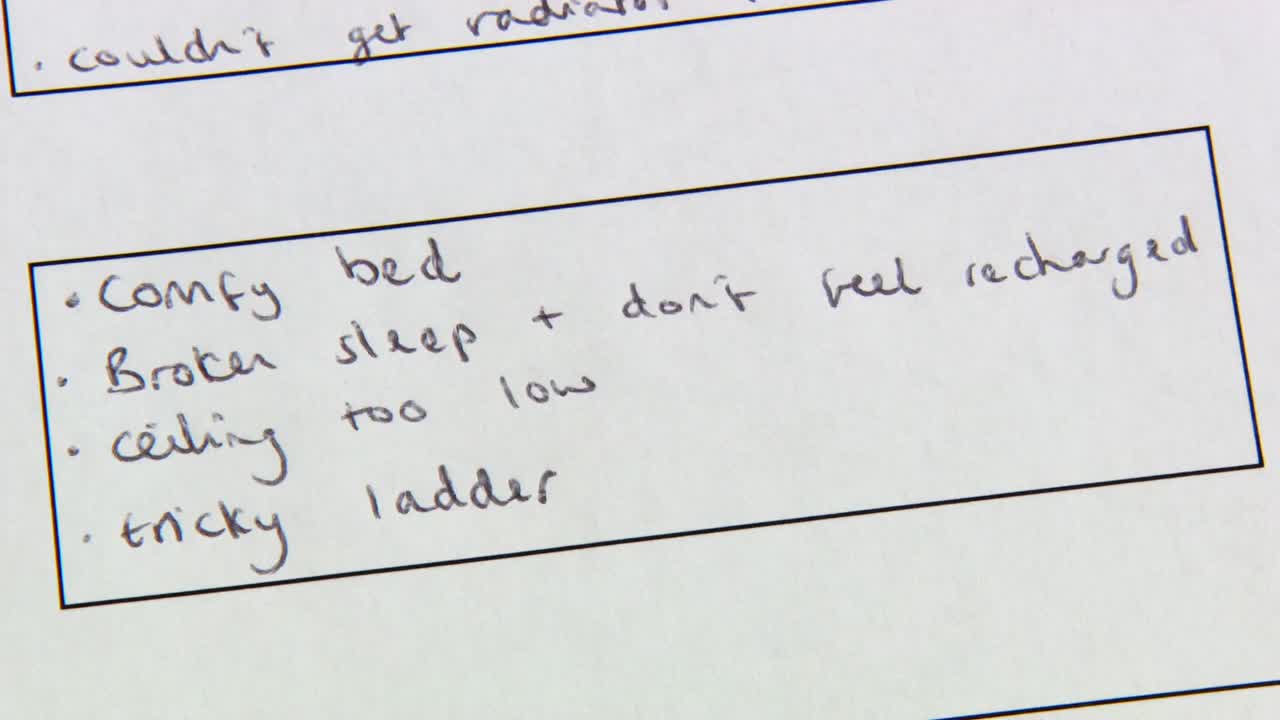 · couldn't get radiator
· Comfy bed
· Broken sleep + don't feel recharged
· ceiling too low
· tricky ladder